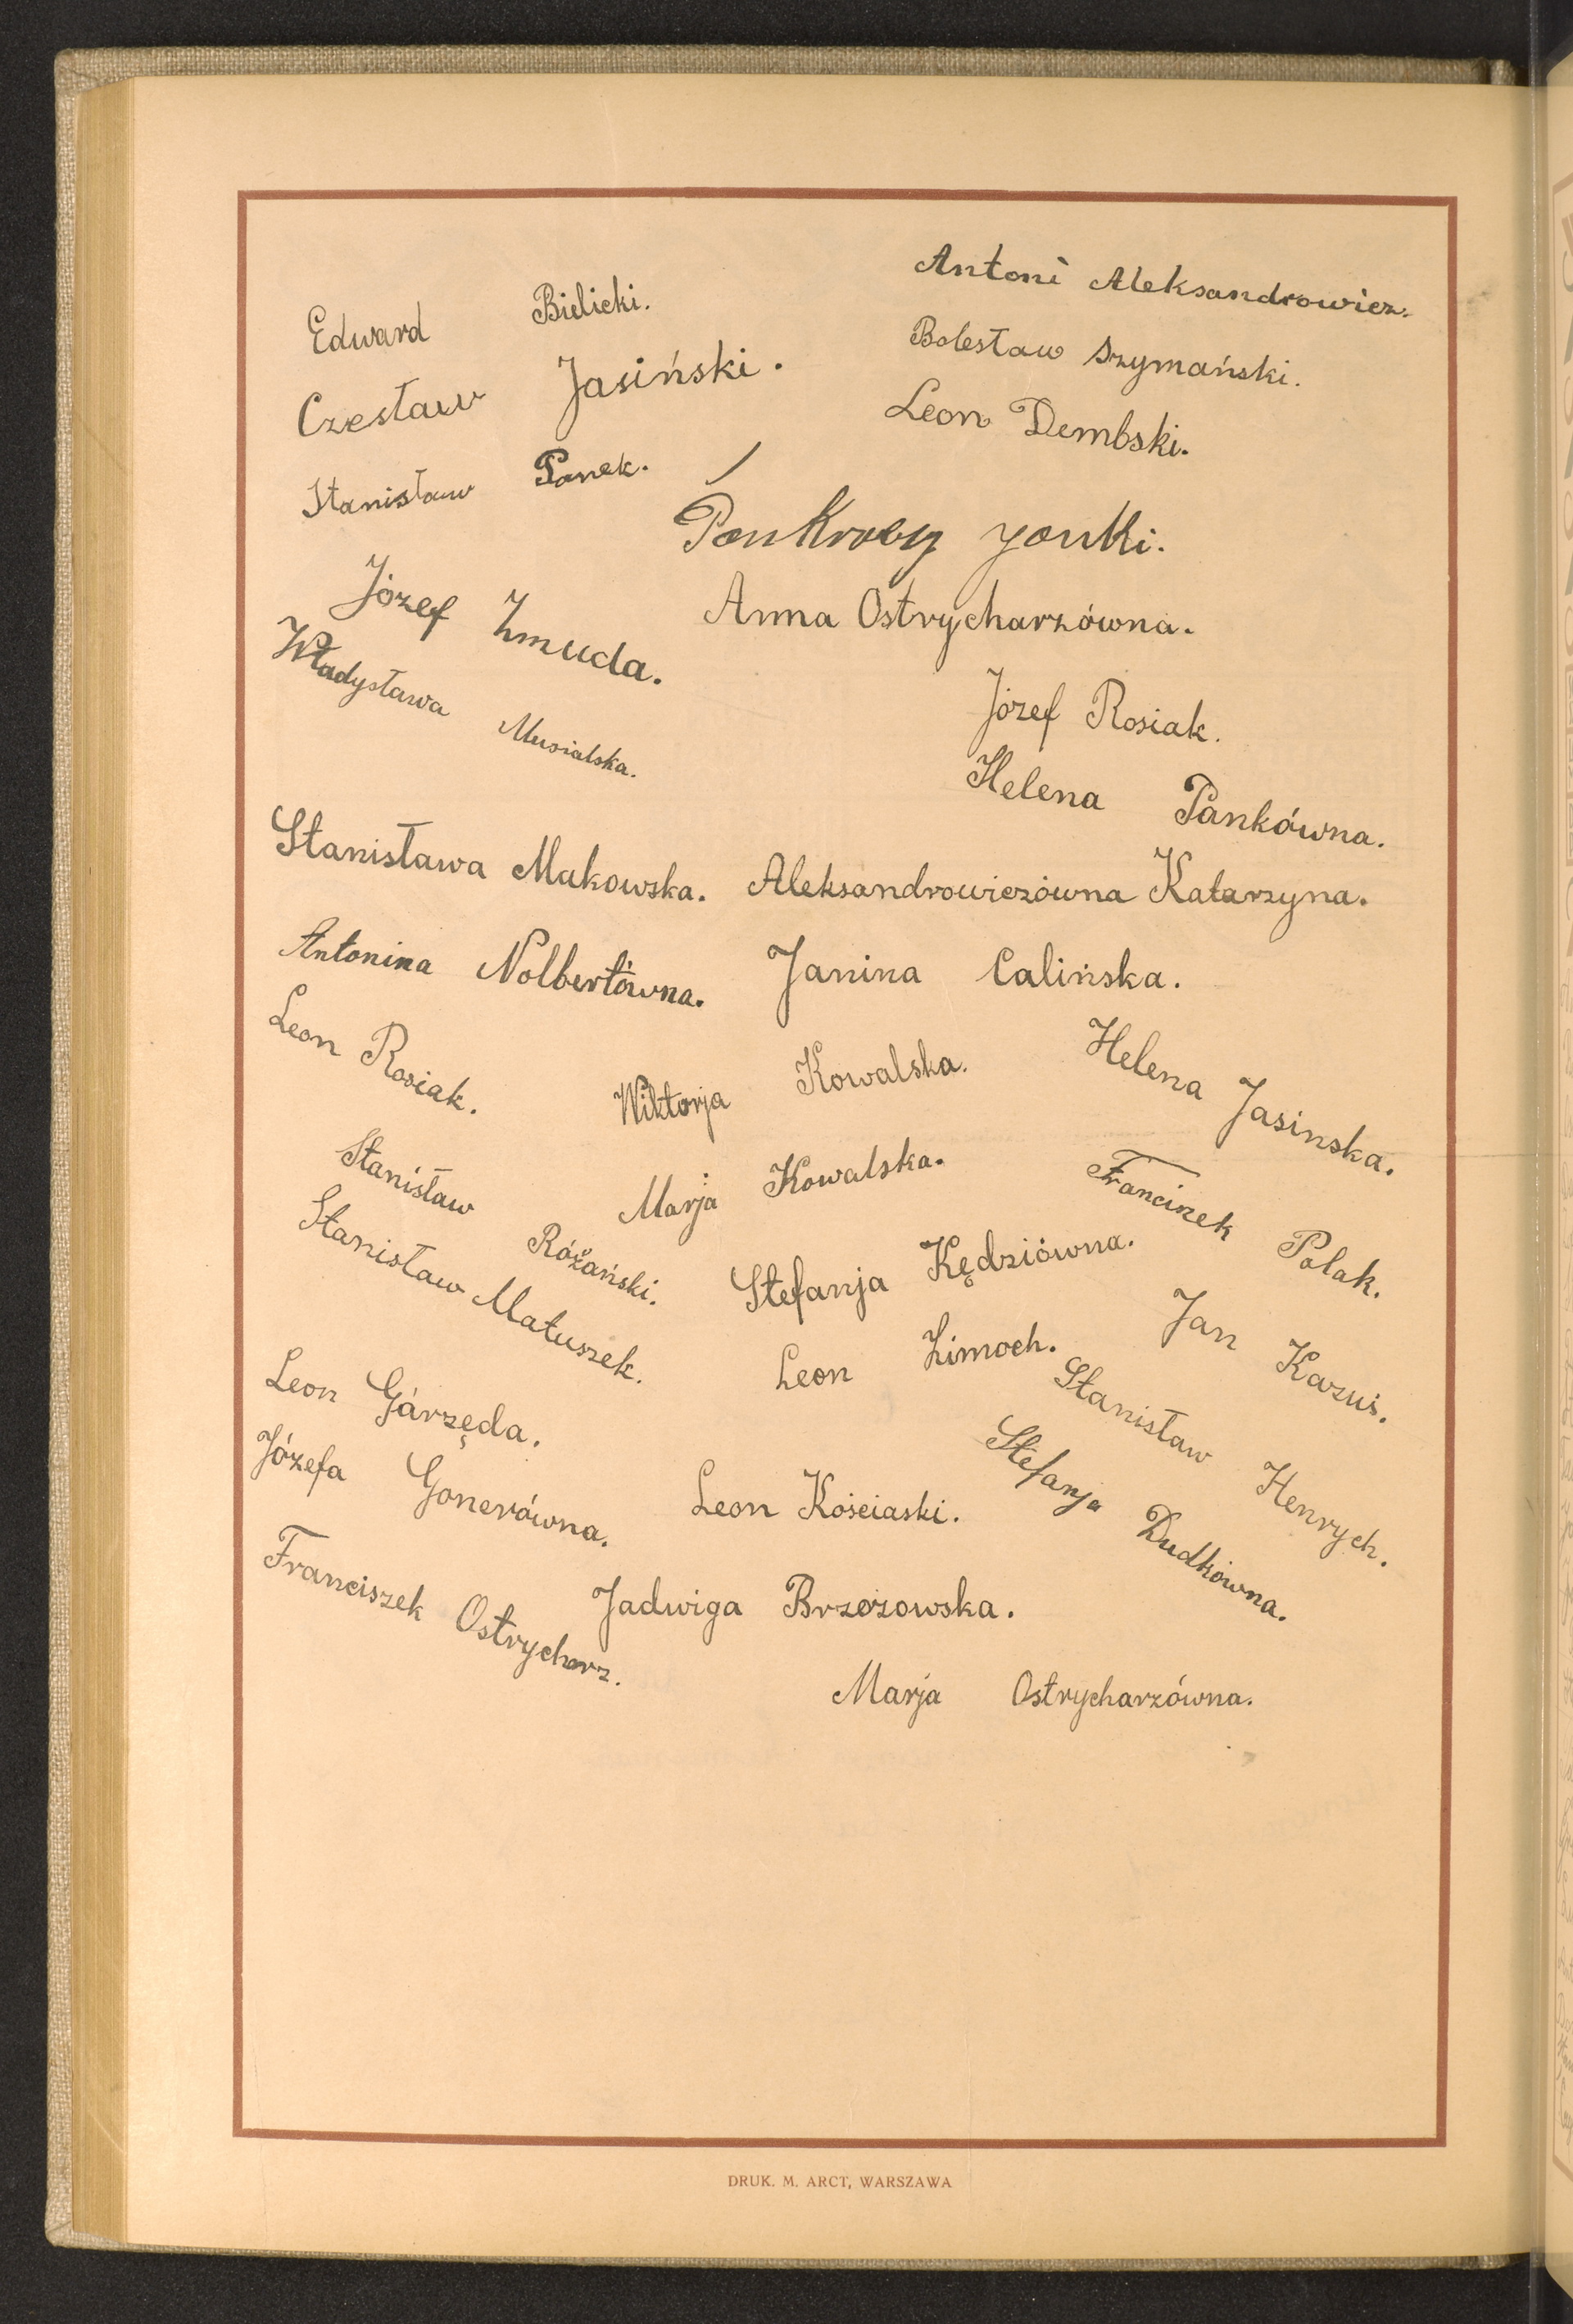 Antoni Aleksandrowicz.
Edward Bielicki.
Bolesław Szymański.
Czesław Jasiński.
Leon Dembski.
Stanisław Panek.
Józef Żmuda.
Anna Ostrycharzówna.
Władysława Musialska.
Józef Rosiak.
Helena Pankówna.
Stanisława Makowska.
Aleksandrowiczówna Katarzyna.
Antonina Nolbertówna.
Janina Calińska.
Leon Rosiak.
Wiktorja Kowalska.
Helena Jasinska.
Stanisław Różański.
Marja Kowalska.
Franciszek Polak.
Stanisław Matuszek.
Stefanja Kędziówna.
Jan Kazuś.
Leon Zimoch.
Leon Gárzęda.
Stanisław Henrych.
Józefa Gonerówna.
Leon Kościaski.
Stefanja Dudkówna.
Franciszek Ostrycharz.
Jadwiga Brzozowska.
Marja Ostrycharzówna.
DRUK. M. ARCT, WARSZAWA